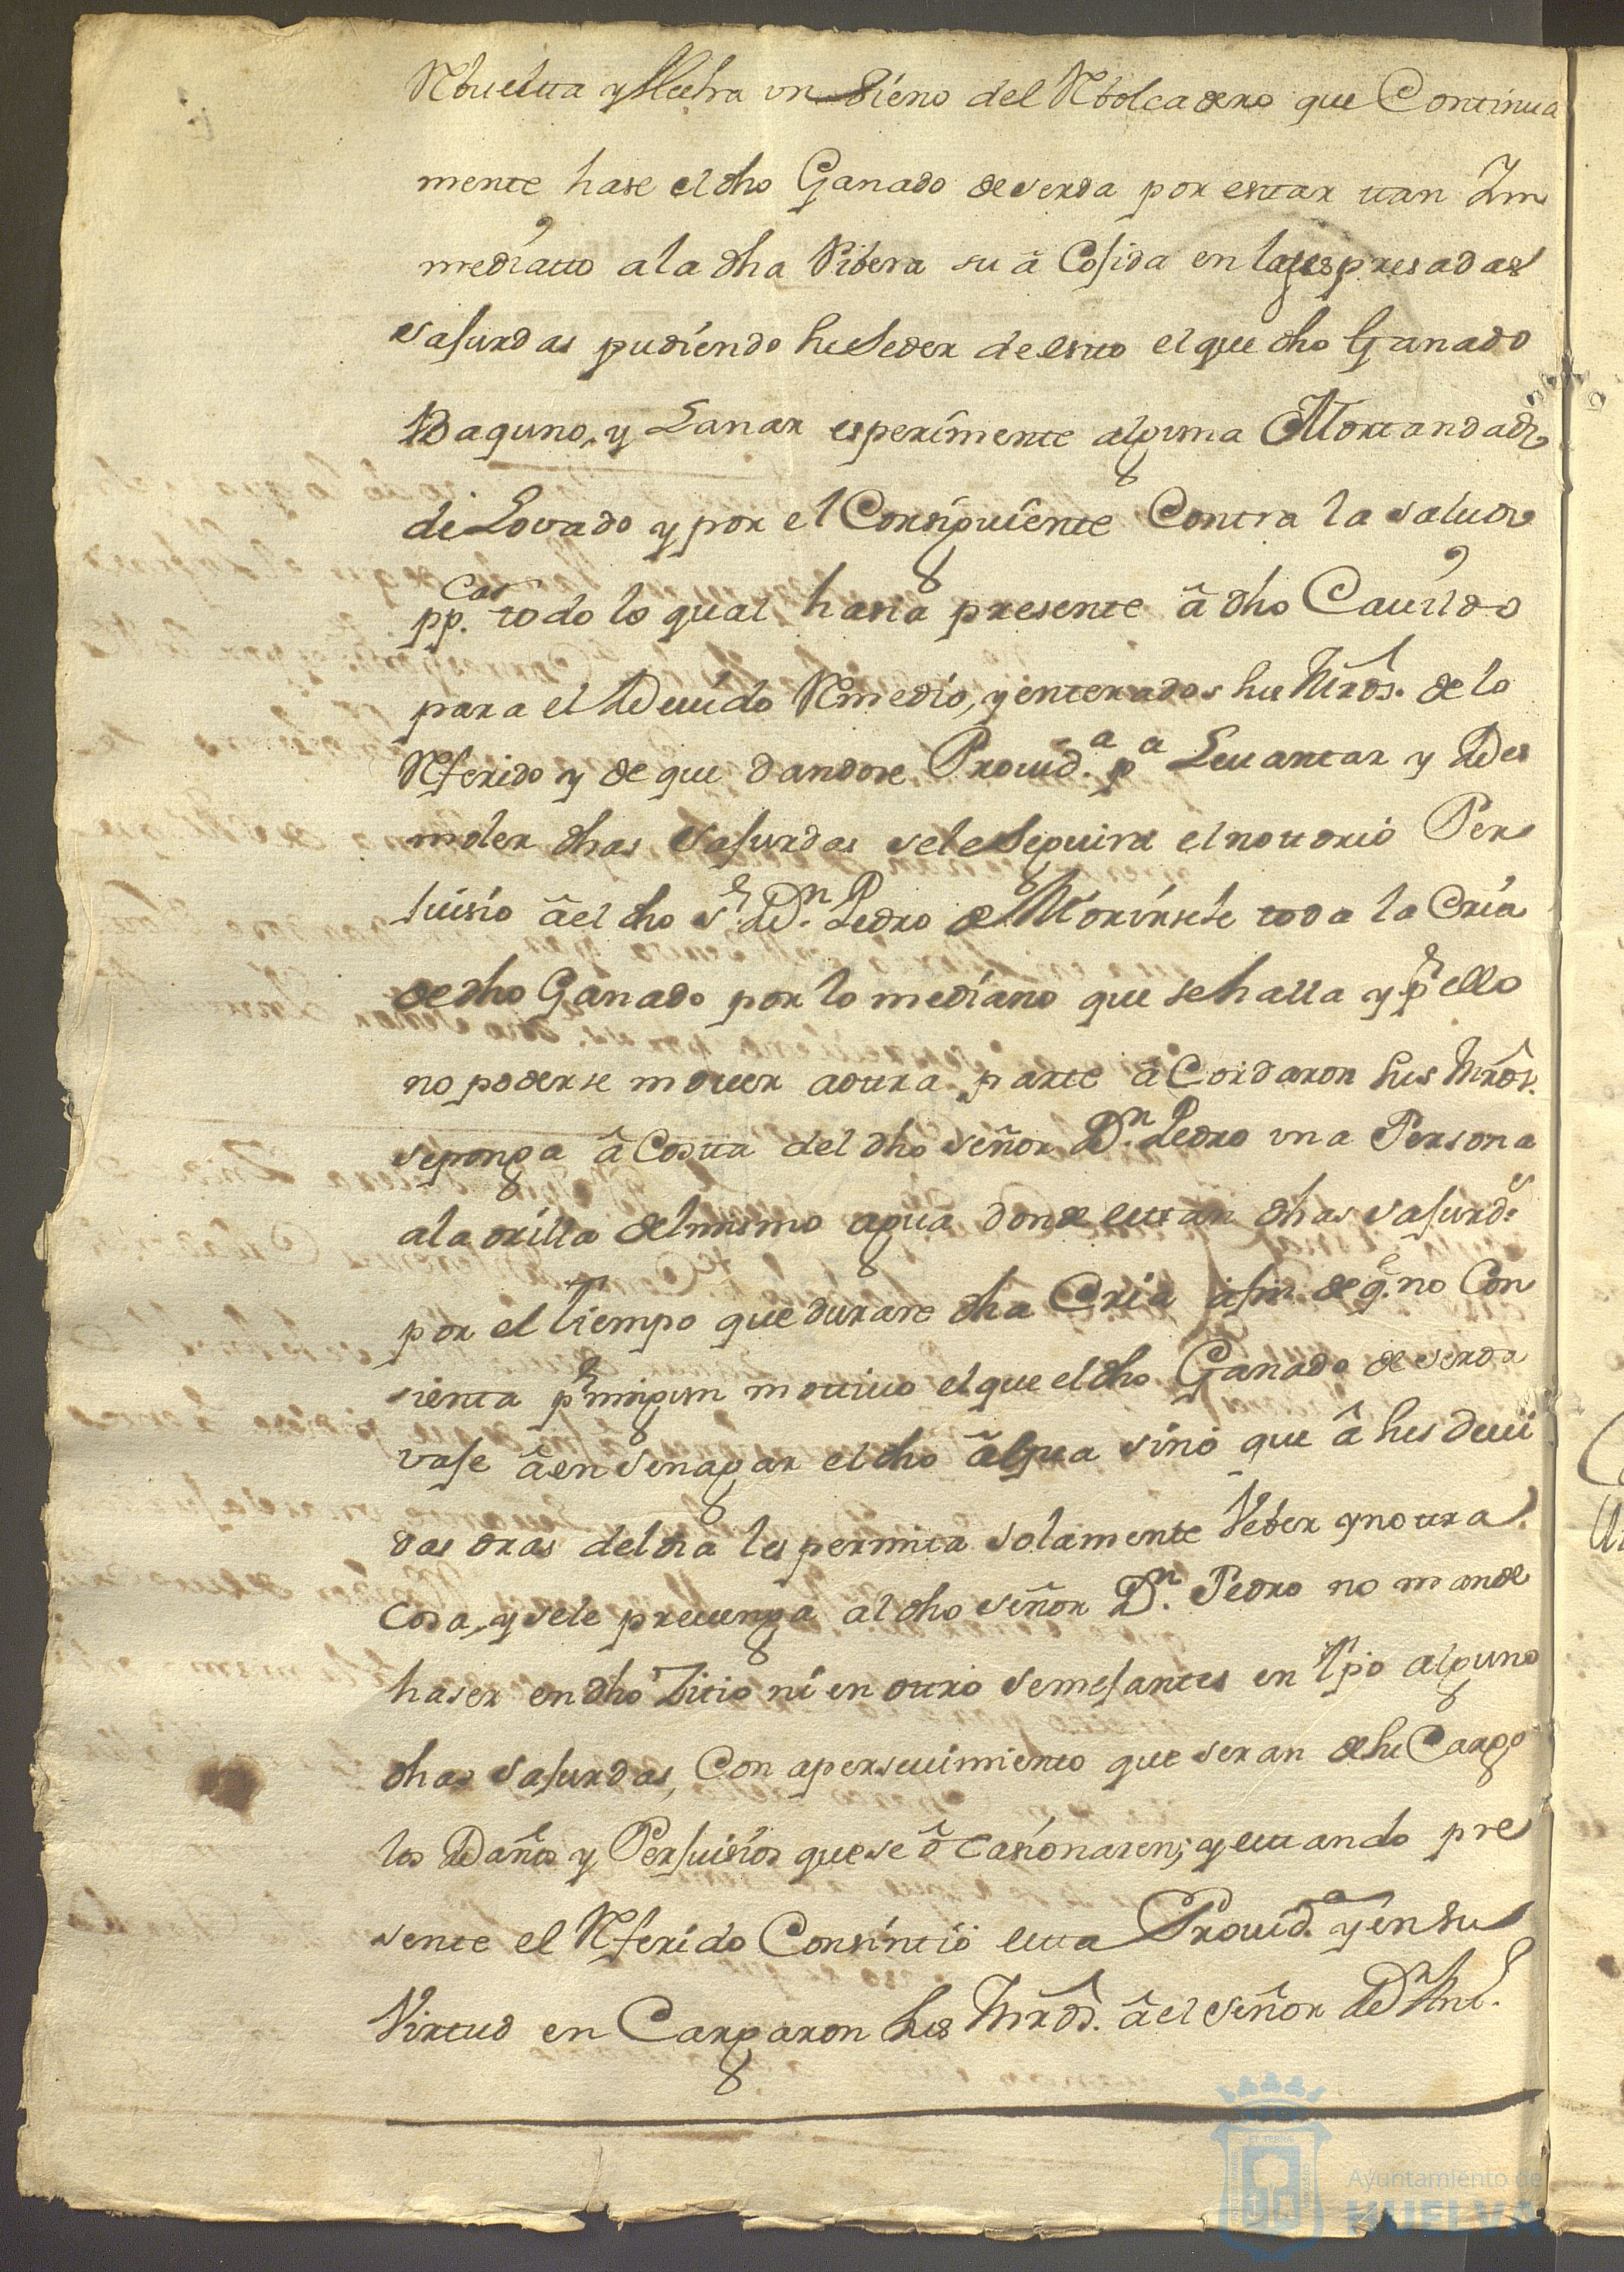 Rbuelta y Hecha un Sieno del Rbolcadero que Continua
mente hase el dho Ganado de serda por estar tan Im
mediatto a la dha Ribera su â Cojida en las espresadas
sasurdas pudiendo suseder de esto el que dho Ganado
Bacuno, y Lanar esperimente alguna Mortandad
de Lovado y por el Consiguiente Contra la salud
ppcas. todo lo qual hasia presente â dho Cavildo
para el Devido Remedio, y enterados su Mrds. de lo
Rferido y de que dandose Provida. pa Levantar y Des
moler dhas Sasurdas se le seguira el notorio Per
juisio âel dho Sr. Dn. Pedro de Morirsele toda la Cria
de dho Ganado por lo mediano que se halla y pr ello
no poderse mover a otra parte â Cordaron sus Mrds.
se ponga â Costa del dho señor Dn. Pedro una Persona
a la orilla del mismo agua donde estan dhas sasurds
por el Tiempo que durare dha Cria â fin de q. no Con
sienta pr ningun motivo el que el dho Ganado de serda
vase â ensenagar el dho âgua sino que â sus devi
das oras del dia les permita solamente Veber y no otra
cosa, y se le prevenga al dho señor Dn. Pedro no mande
haser en dho Zitio ni en otro semejantes en tpo alguno
dhas sasurdas, Con apersevimiento que seran de su Cargo
los Daños y Perjuisios que se ôcasionaren; y estando pre
sente el Rferido Consintió esta Provida. y en su
Virtud en Cargaron sus Mrds. âel señor Dn Ant.
Ayuntamiento de
HUELVA